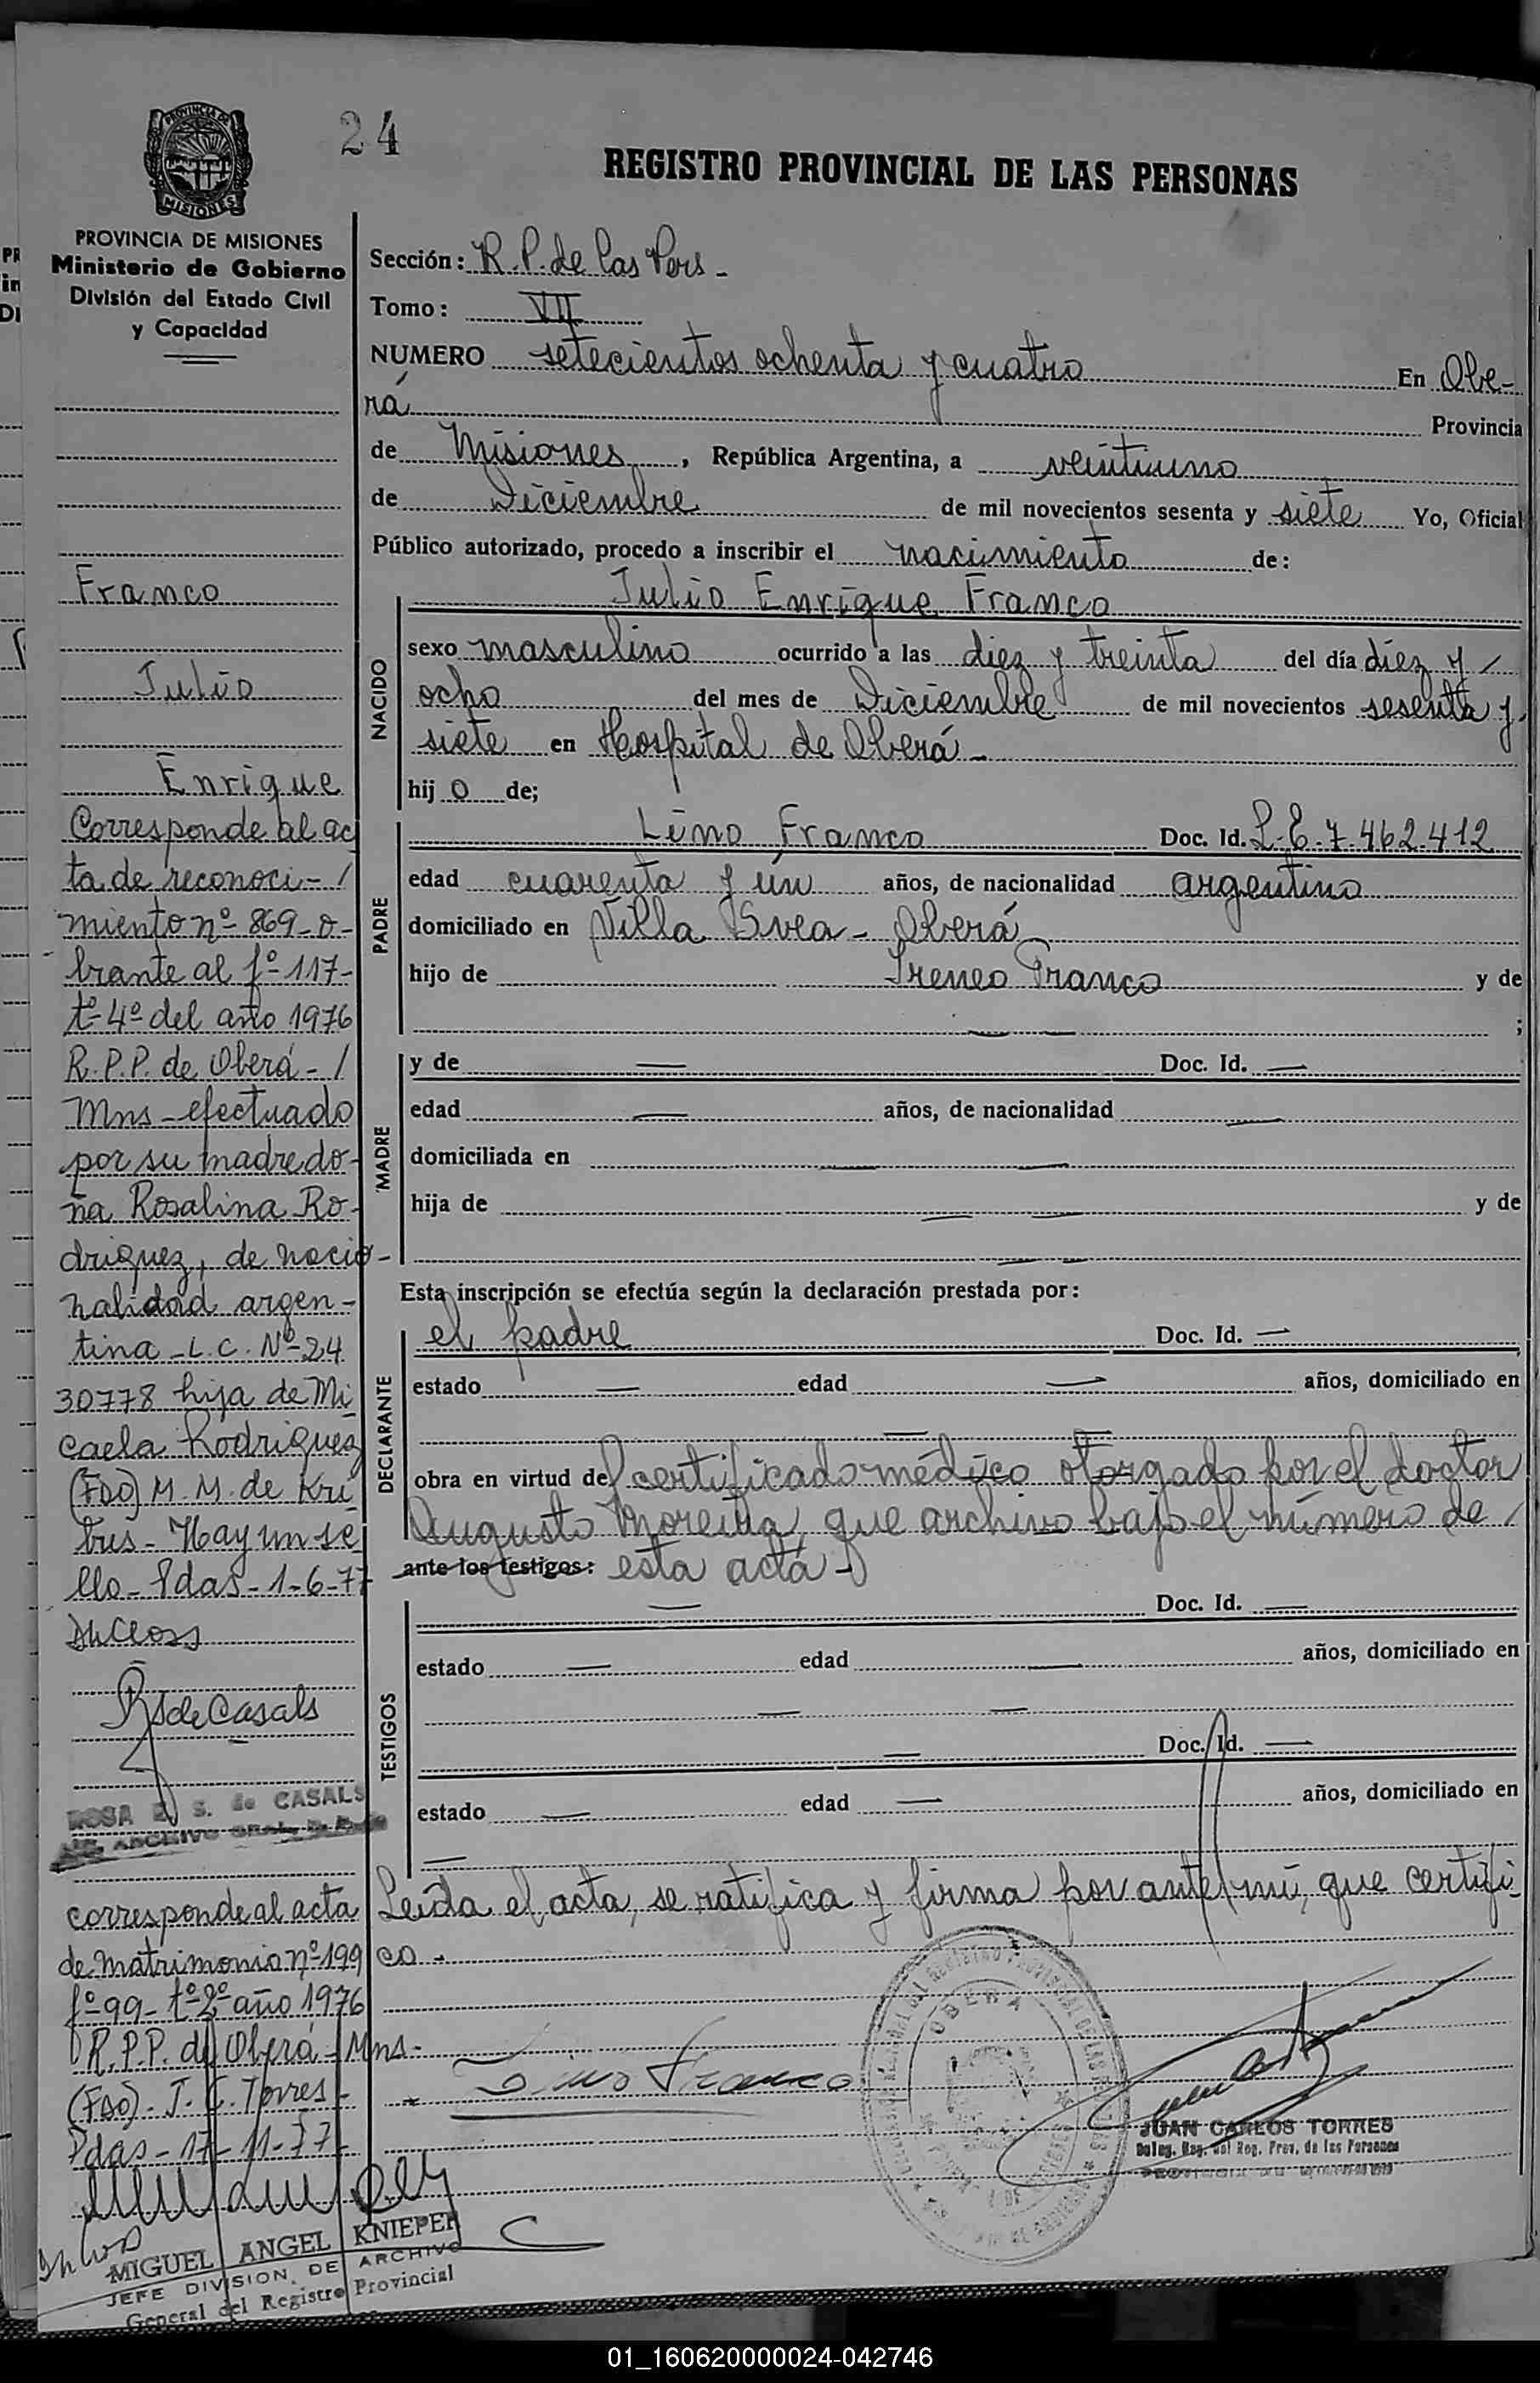 24
REGISTRO PROVINCIAL DE LAS PERSONAS
PROVINCIA DE MISIONES
MISIONES
PROVINCIA DE MISIONES
Ministerio de Gobierno
División del Estado Civil
y Capacidad
Franco
Julio
Enrique
Corresponde al ac
ta de reconoci-/
miento nº 869-o-
brante al fº 117-
tº 4º del año 1976
R.P.P. de Oberá-/
Mns-efectuado
por su madre do-
ña Rosalina Ro-
driguez, de nacio-
nalidad argen-
tina-L.C. Nº 24
30778 hija de Mi
caela Rodriguez
(FDO) M.M. de Kri
tus-Hay un se
llo-Pdas-1-6-77
de Casals
ROSA E. S. de CASALS
corresponde al acta
de matrimonio nº 199
fº 99-tº 2º año 1976
R.P.P. de Oberá-Mns-
(FDO)-J.C. Torres-
Pdas-17-11-77
MIGUEL ANGEL KNIEPER
JEFE DIVISION DE ARCHIVO
General del Registro Provincial
Sección: R.P. de las Pers-
Tomo: VII
NUMERO setecientos ochenta y cuatro En Obe-
rá Provincia
de Misiones, República Argentina, a veintiuno
de Diciembre de mil novecientos sesenta y siete Yo, Oficial
Público autorizado, procedo a inscribir el nacimiento de:
Julio Enrique Franco
NACIDO
sexo masculino ocurrido a las diez y treinta del día diez y /
ocho del mes de Diciembre de mil novecientos sesenta y
siete en Hospital de Oberá-
hij o de;
PADRE
Lino Franco Doc. Id. L.E. 7.462.412
edad cuarenta y un años, de nacionalidad argentino
domiciliado en Villa Svea-Oberá
hijo de Ireneo Franco y de
— — ;
MADRE
y de — Doc. Id. —
edad — años, de nacionalidad —
domiciliada en — —
hija de — — y de
— —
Esta inscripción se efectúa según la declaración prestada por:
DECLARANTE
el padre Doc. Id. —
estado — edad — años, domiciliado en
—
obra en virtud del certificado médico otorgado por el doctor
Augusto Moreira, que archivo bajo el número de /
ante los testigos: esta acta-
TESTIGOS
— Doc. Id. —
estado — edad — años, domiciliado en
— —
— Doc. Id. —
estado — edad — años, domiciliado en
—
Leída el acta, se ratifica y firma por ante mí, que certifi-
co-
Lino Franco
OBERA
JUAN CARLOS TORRES
Deleg. Reg. del Reg. Prov. de las Personas
01_160620000024-042746